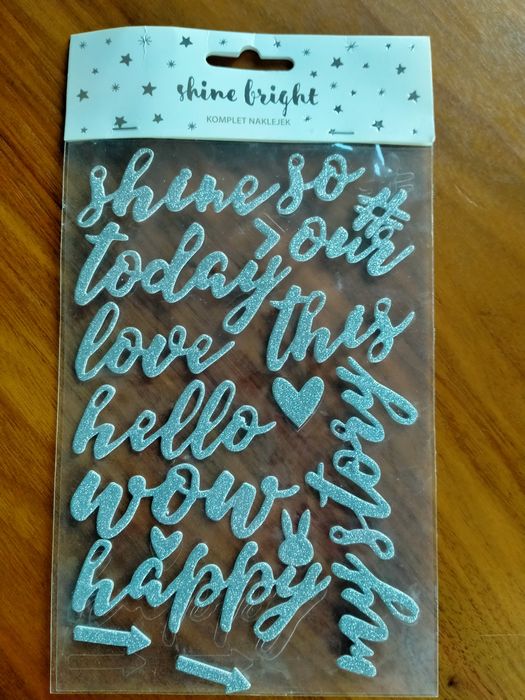 shine bright
KOMPLET NAKLEJEK
shine so
#
today > our
love this
hello
wow
happy
my story